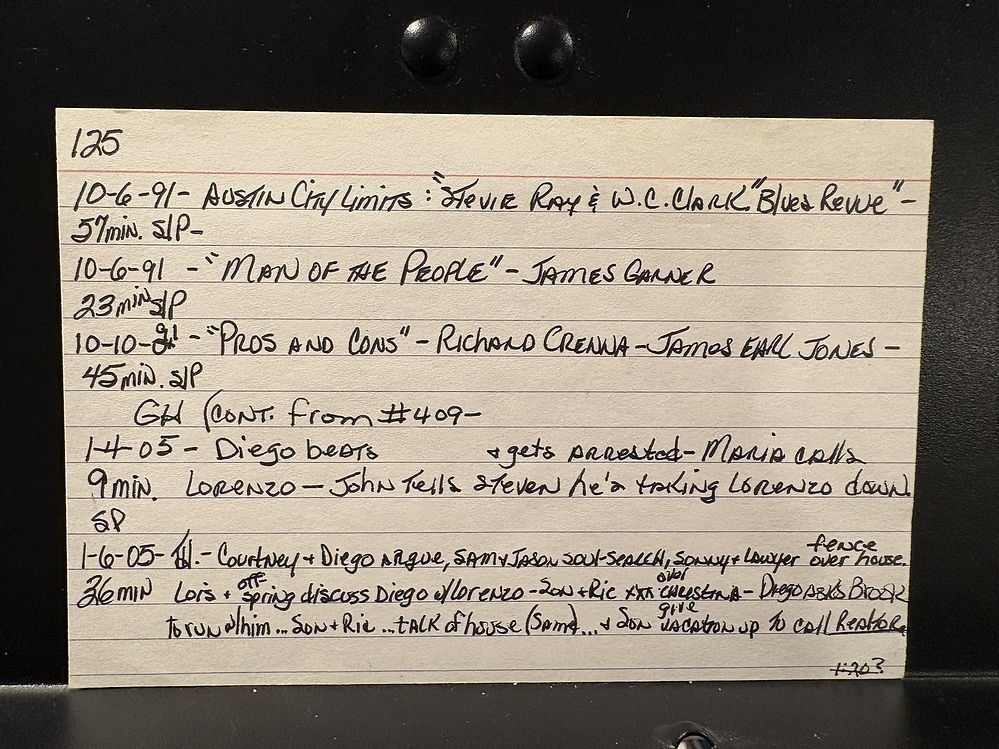 125
10-6-91- AUSTIN CITY LIMITS : "STEVIE RAY & W.C. CLARK" "Blues Revue" -
57min. S/P-
10-6-91 - "MAN OF THE PEOPLE" - JAMES GARNER
23min S/P
10-10-91 - "PROS AND CONS" - RICHARD CRENNA - JAMES EARL JONES -
45min. S/P
GH (CONT. from #409-
1-4-05 - Diego beats + gets ARRESTED - MARIA calls
9min. LORENZO - JOHN Tells STEVEN he's taking LORENZO down.
SP
1-6-05- - Courtney + Diego ARgue, SAM + JASON SOUL-SEARCH, SONNY + Lawyer fence over house.
36min Lois + offspring discuss Diego w/Lorenzo - SON + RIC over CHRISTINA - Diego ASKS BROOK
to run w/him ... SON + Ric ... TALK of house (SAM) ... + SON give up to call Realtor.
1:20?